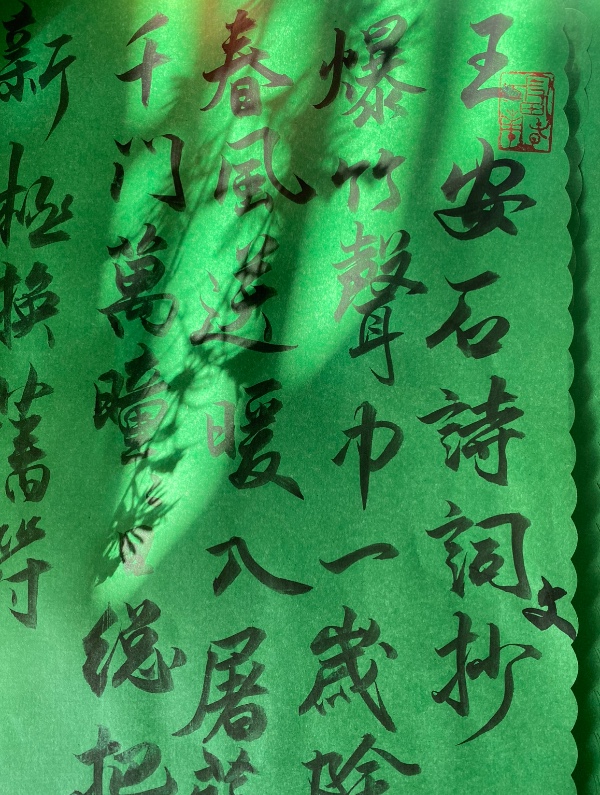 王安石詩詞抄
文
爆竹聲中一歲除
春風送暖入屠蘇
千門萬曈總把
新桃換舊符